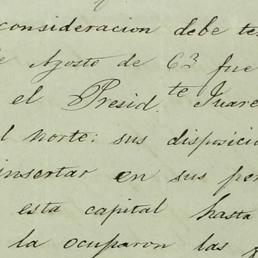 consideracion debe te
Agosto de 63 fue
el Presid.te Juare
l norte: sus disposicio
insertar en sus per
esta capital hasta
la ocuparon las f